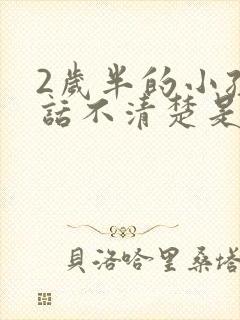 2歲半的小
話不清楚是
貝洛哈里桑塔